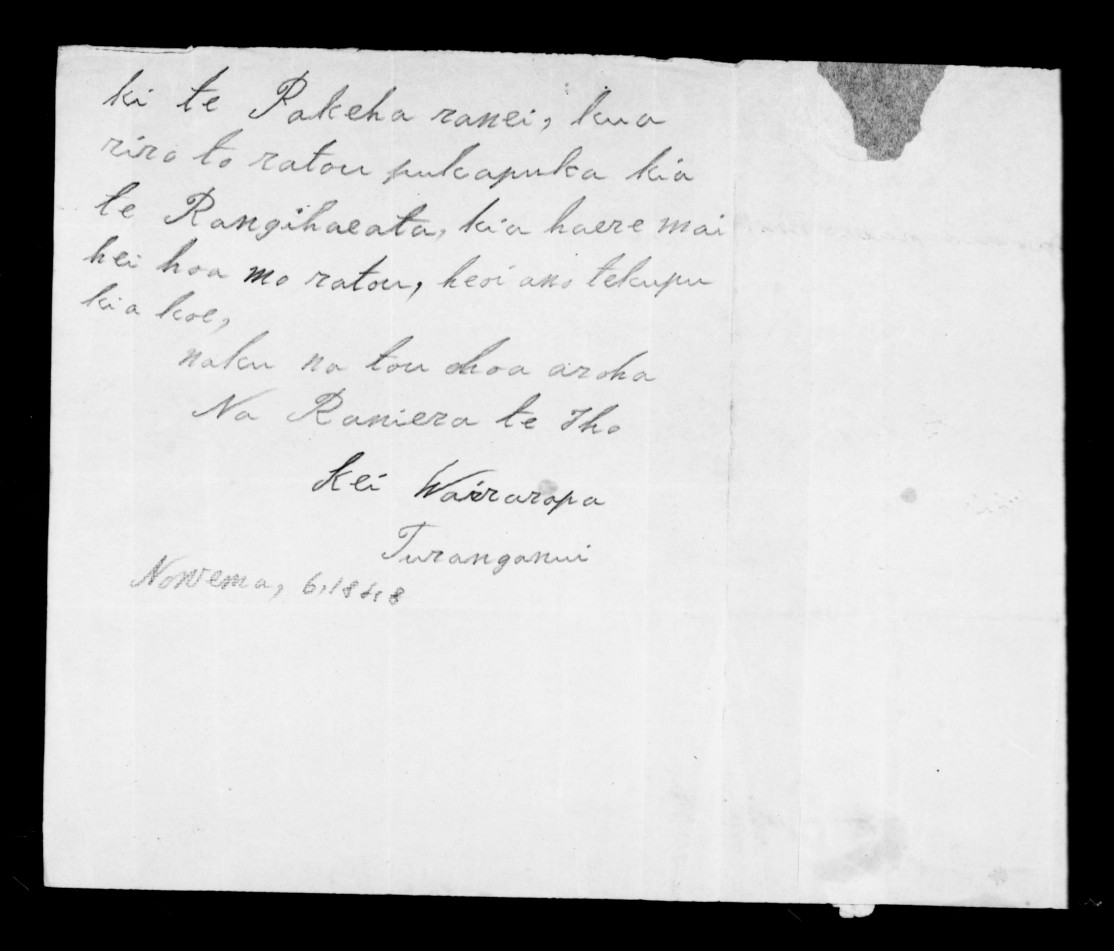 ki te Pakeha ranei, kua
riro to ratou pukapuka kia
te Rangihaeata, kia haere mai
hei hoa mo ratou, heoi ano tekupu
kia koe,
naku na tou hoa aroha
Na Raniera te Iho
Kei Wairarapa
Turanganui
Nowema, 6, 1848